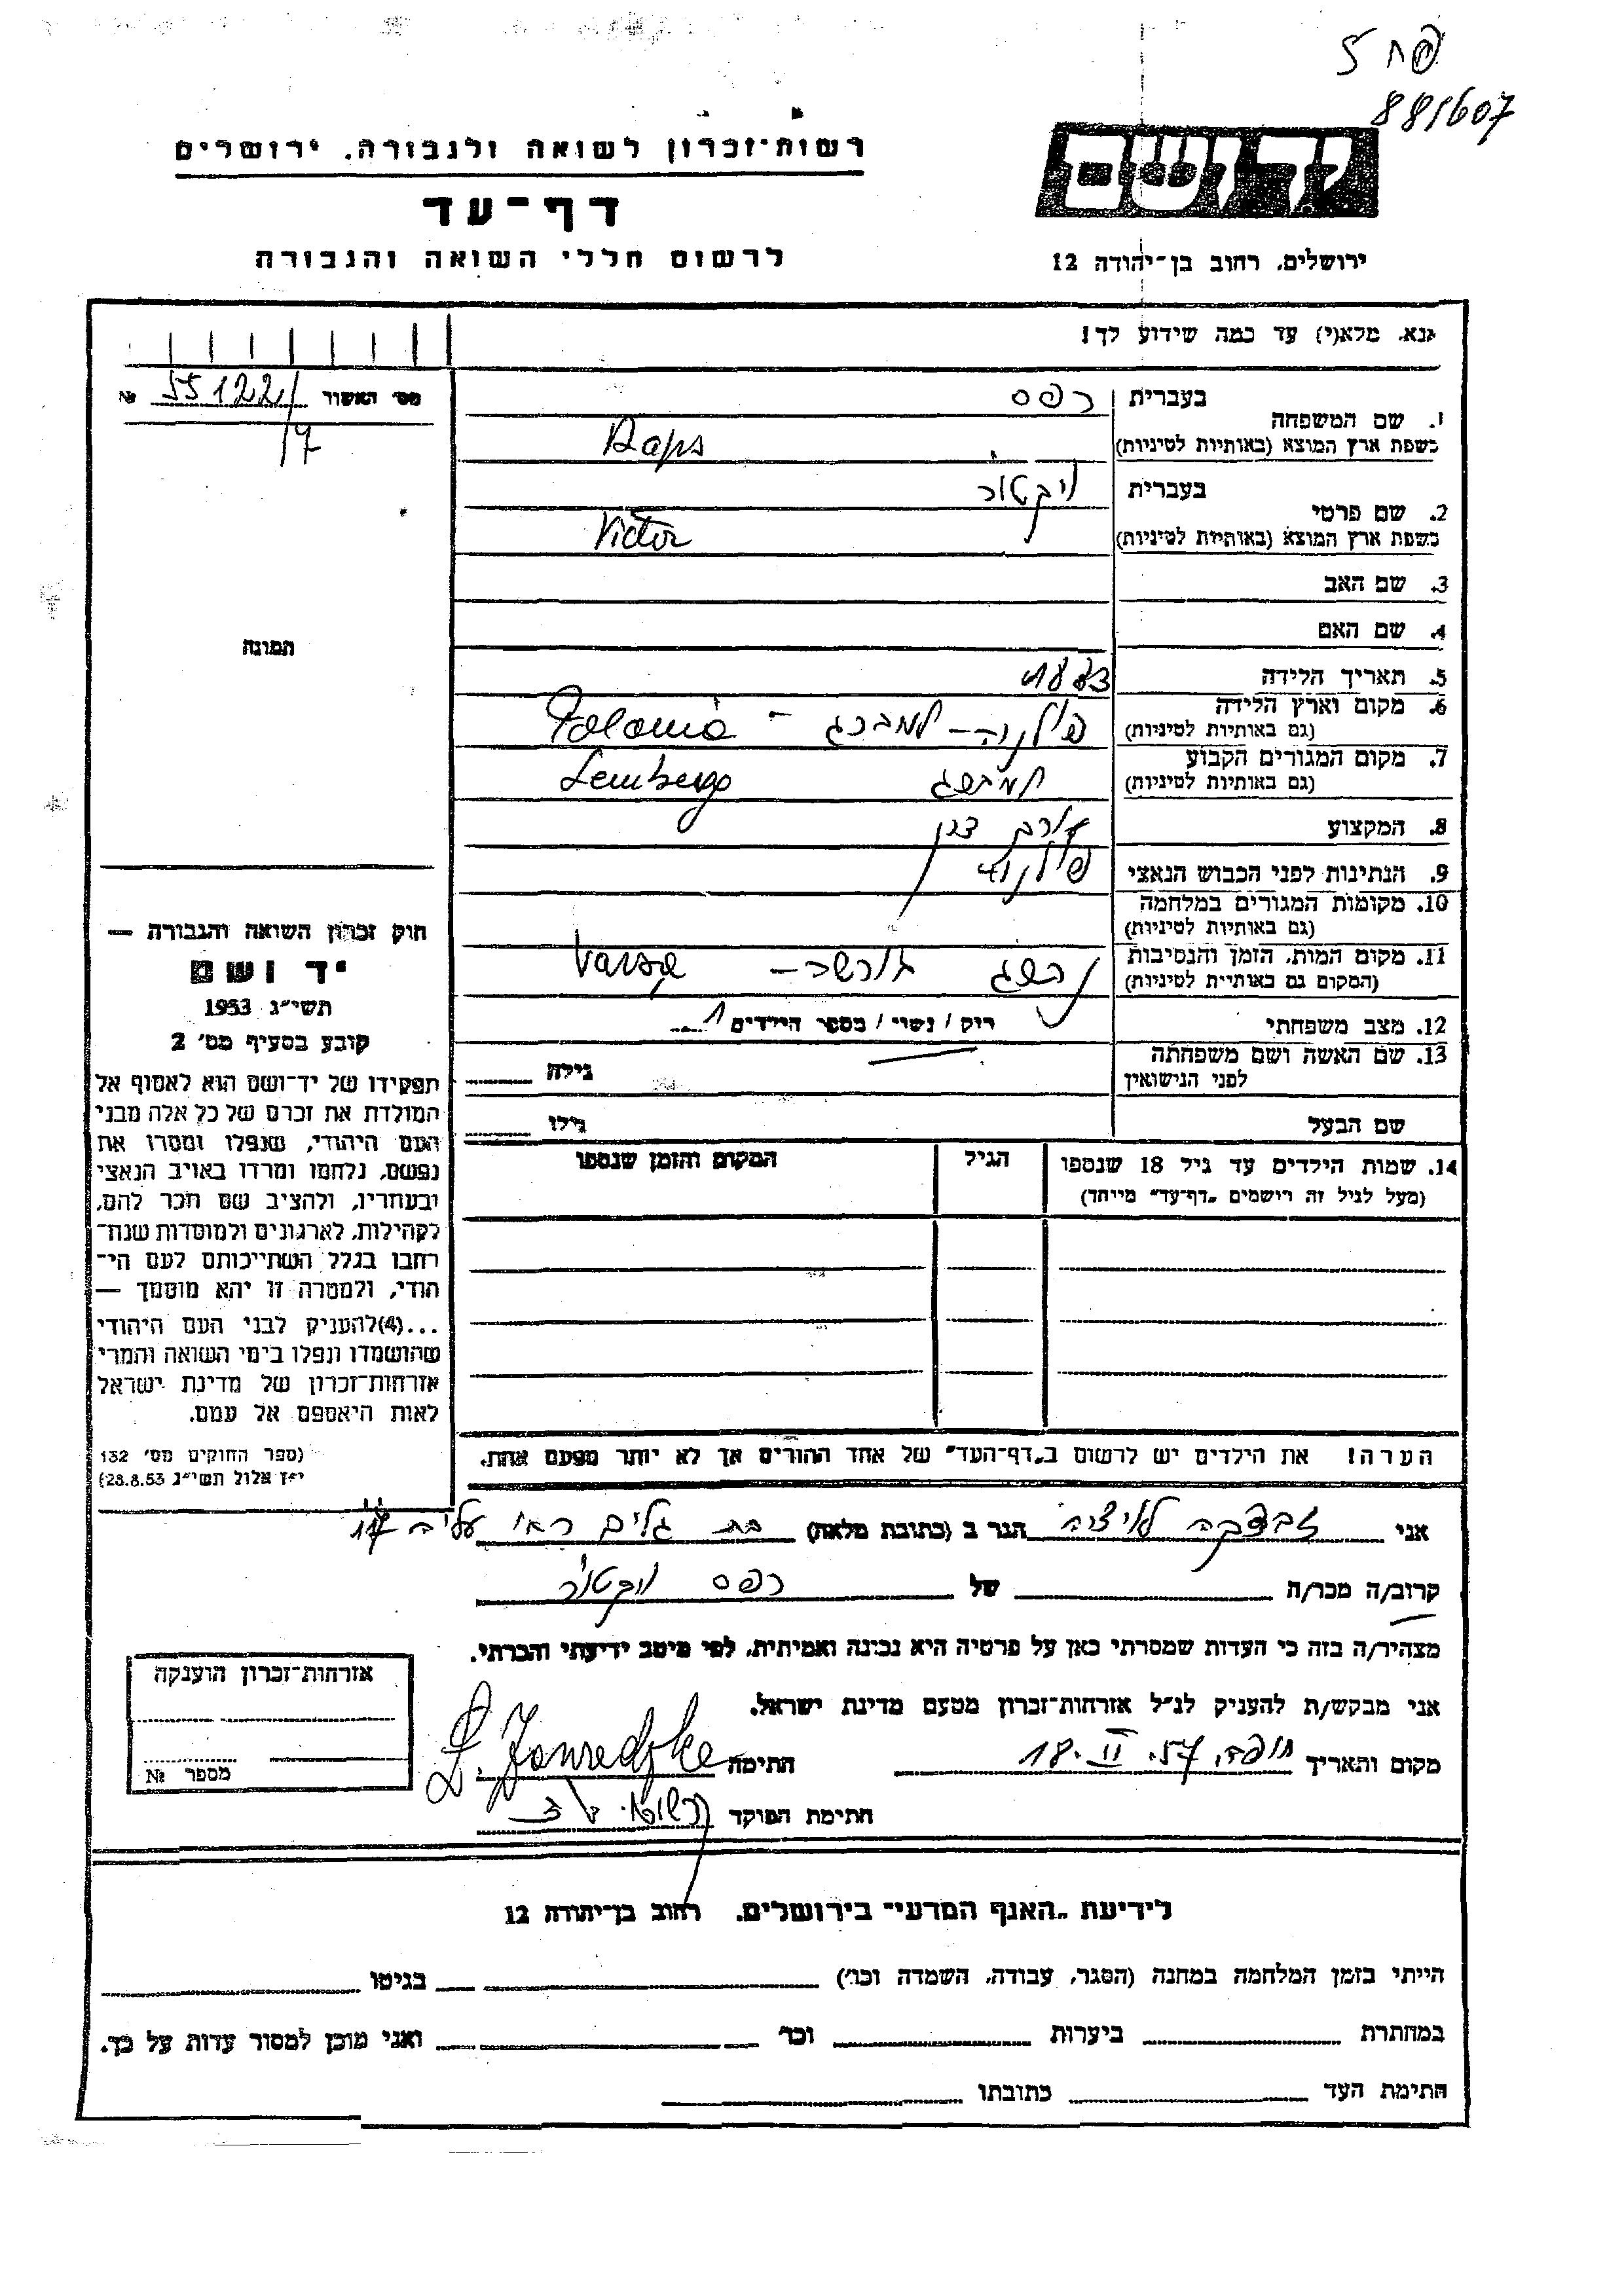 5 חפ
881607
רשות־זכרון לשואה ולגבורה. ירושלים
דף־עד
לרשום חללי השואה והגבורה
יד ושם
ירושלים. רחוב בן־יהודה 12
נא. מלא(י) עד כמה שידוע לך!
מס׳ האשור 55122/ №
17
התמונה
1. שם המשפחה
בעברית רפס
בשפת ארץ המוצא (באותיות לטיניות) Raps
2. שם פרטי
בעברית ויקטור
בשפת ארץ המוצא (באותיות לטיניות) Victor
3. שם האב
4. שם האם
5. תאריך הלידה
6. מקום וארץ הלידה פולניה – למברג – Polonia
(גם באותיות לטיניות)
7. מקום המגורים הקבוע למברג Lemberg
(גם באותיות לטיניות)
8. המקצוע עורך דין
9. הנתינות לפני הכבוש הנאצי פולנית
10. מקומות המגורים במלחמה
(גם באותיות לטיניות)
11. מקום המות. הזמן והנסיבות נהרג ורשה –
(המקום גם באותיות לטיניות)
12. מצב משפחתי רוק / נשוי / מספר הילדים 1
13. שם האשה ושם משפחתה
לפני הנישואין גילה
שם הבעל גילו
14. שמות הילדים עד גיל 18 שנספו
(מעל לגיל זה רושמים „דף־עד״ מייחד)
הגיל
המקום והזמן שנספו
הערה! את הילדים יש לרשום ב„דף־העד״ של אחד ההורים אך לא יותר מפעם אחת.
חוק זכרון השואה והגבורה —
יד ושם
תשי״ג 1953
קובע בסעיף מס׳ 2
תפקידו של יד־ושם הוא לאסוף אל
המולדת את זכרם של כל אלה מבני
העם היהודי, שנפלו ומסרו את
נפשם, נלחמו ומרדו באויב הנאצי
ובעוזריו, ולהציב שם וזכר להם,
לקהילות, לארגונים ולמוסדות שנח־
רבו בגלל השתייכותם לעם הי־
הודי, ולמטרה זו יהא מוסמך —
...(4)להעניק לבני העם היהודי
שהושמדו ונפלו בימי השואה והמרי
אזרחות־זכרון של מדינת ישראל
לאות היאספם אל עמם.
(ספר החוקים מס׳ 132
י״ז אלול תשי״ג 28.8.53)
אני הגר ב (כתובת מלאה) בת גלים רח׳ עליה 17
קרוב/ה מכר/ה של רפס ויקטור
מצהיר/ה בזה כי העדות שמסרתי כאן על פרטיה היא נכונה ואמיתית, לפי מיטב ידיעתי והכרתי.
אני מבקש/ת להעניק לנ״ל אזרחות־זכרון מטעם מדינת ישראל.
מקום ותאריך חיפה, 18.II.57 חתימה
חתימת הפוקד
אזרחות־זכרון הוענקה
מספר №
לידיעת „האגף המדעי״ בירושלים. רחוב בן־יהודה 12
הייתי בזמן המלחמה במחנה (הסגר, עבודה, השמדה וכו׳) בגיטו
במחתרת ביערות וכו׳ ואני מוכן למסור עדות על כך.
חתימת העד כתובתו